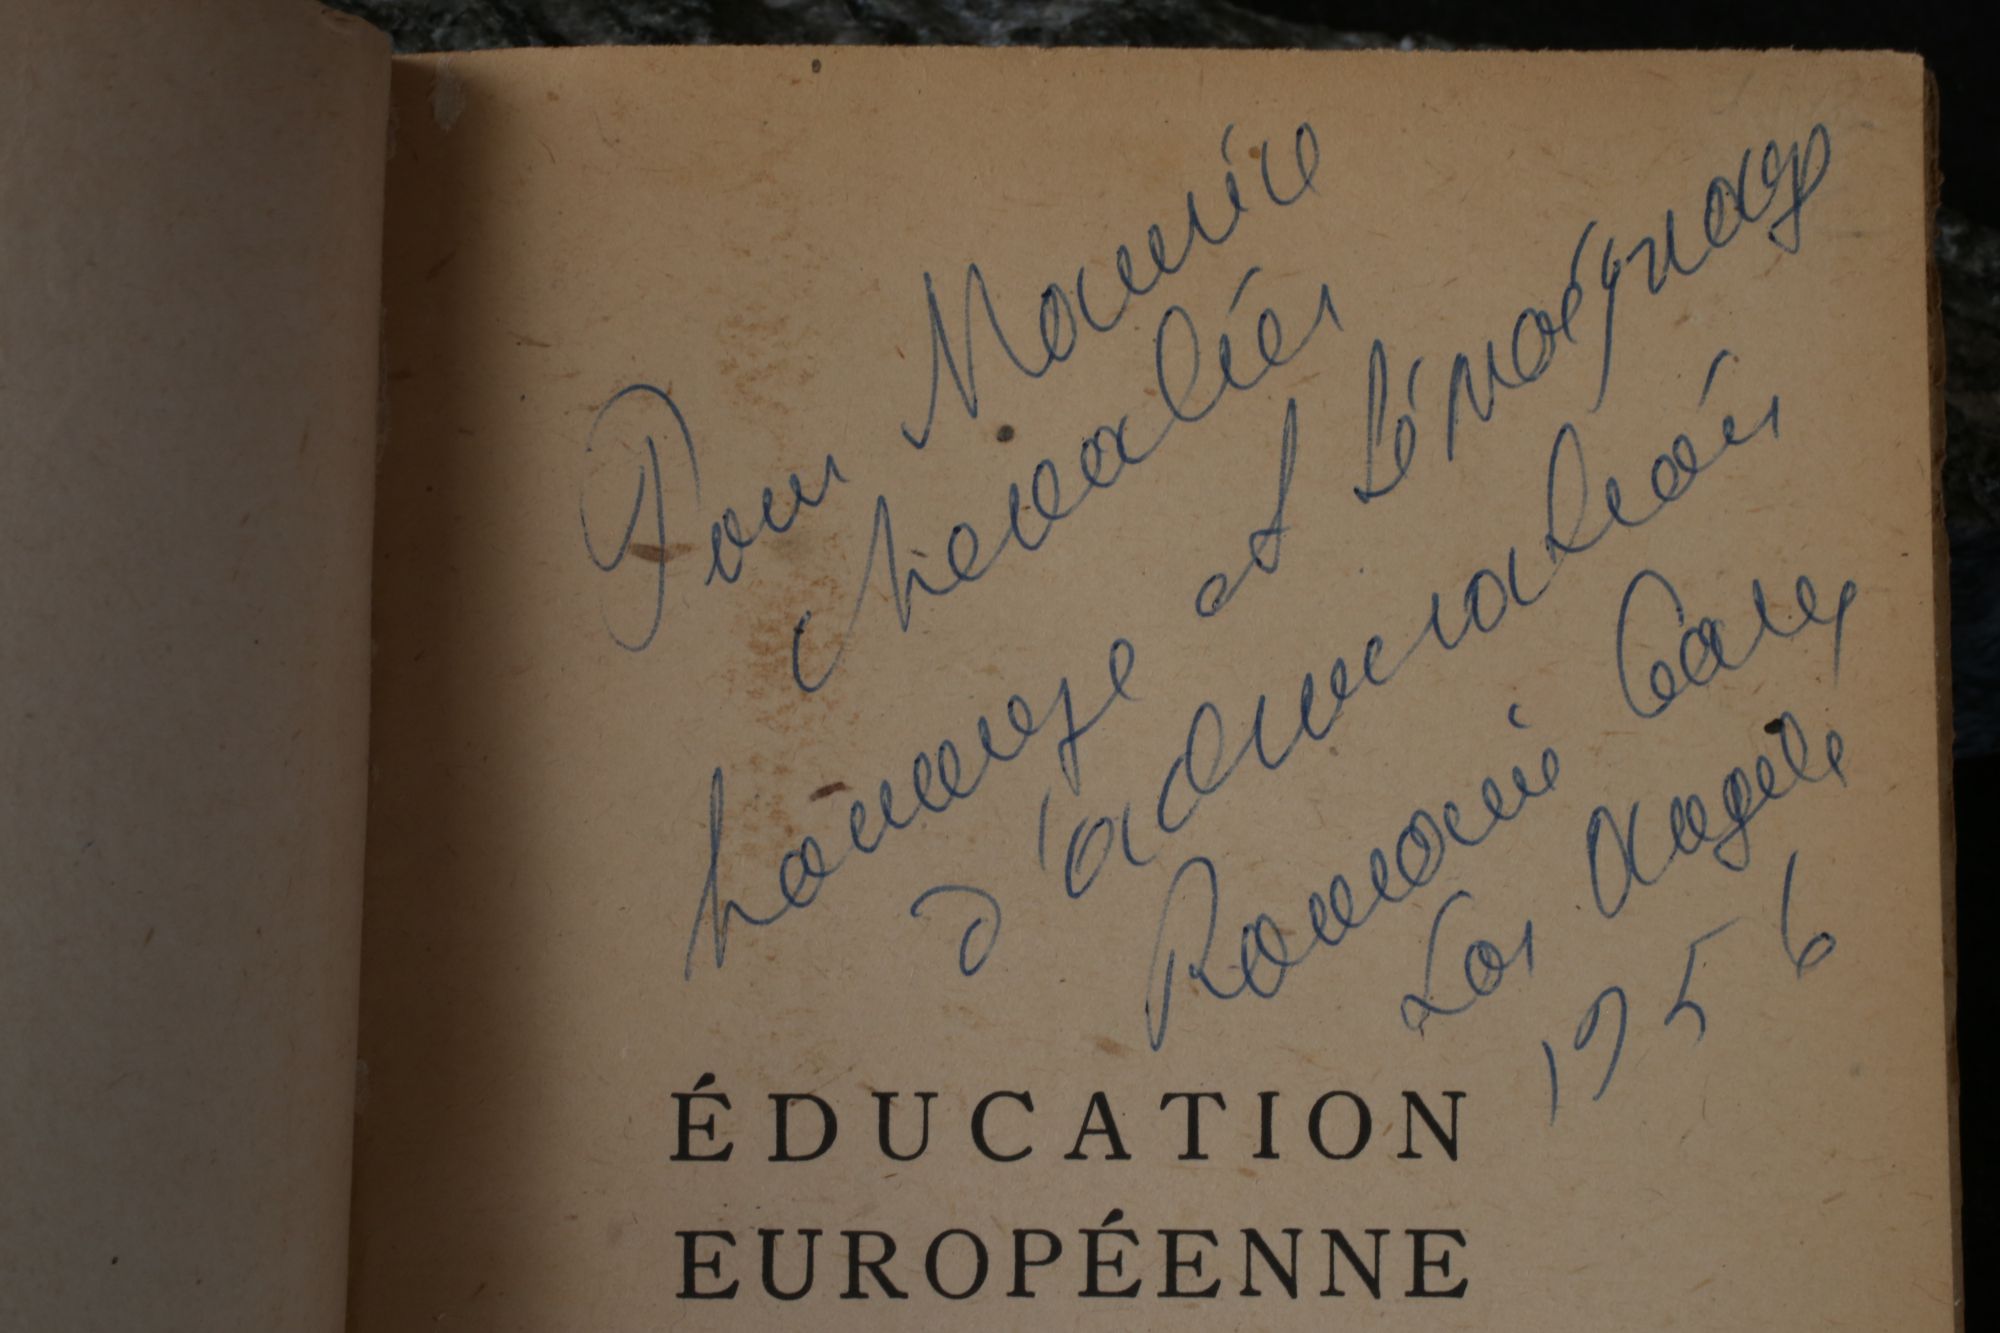 Pour Maurice
Chevalier
hommage et témoignage
d'admiration
Romain Gary
Los Angeles
1956
ÉDUCATION
EUROPÉENNE